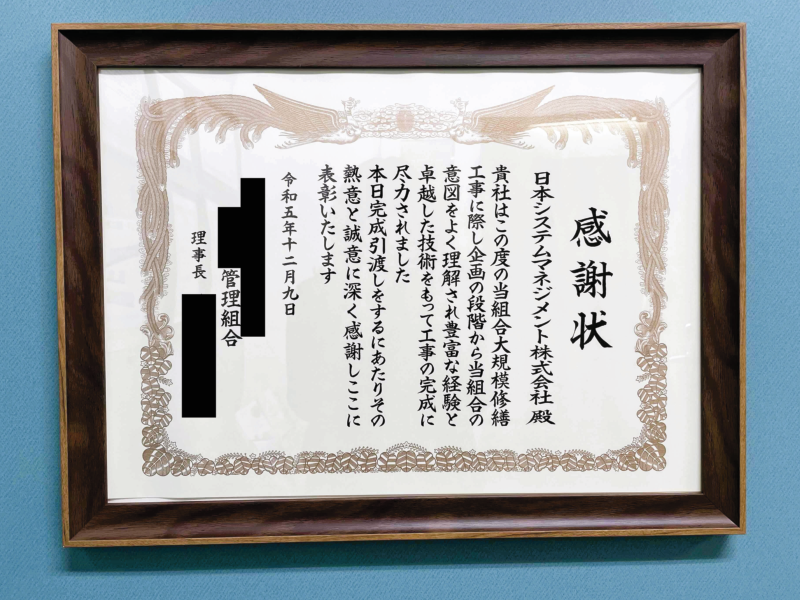 感謝状
日本システムマネジメント株式会社 殿
貴社はこの度の当組合大規模修繕
工事に際し企画の段階から当組合の
意図をよく理解され豊富な経験と
卓越した技術をもって工事の完成に
尽力されました
本日完成引渡しをするにあたりその
熱意と誠意に深く感謝しここに
表彰いたします
令和五年十二月九日
管理組合
理事長